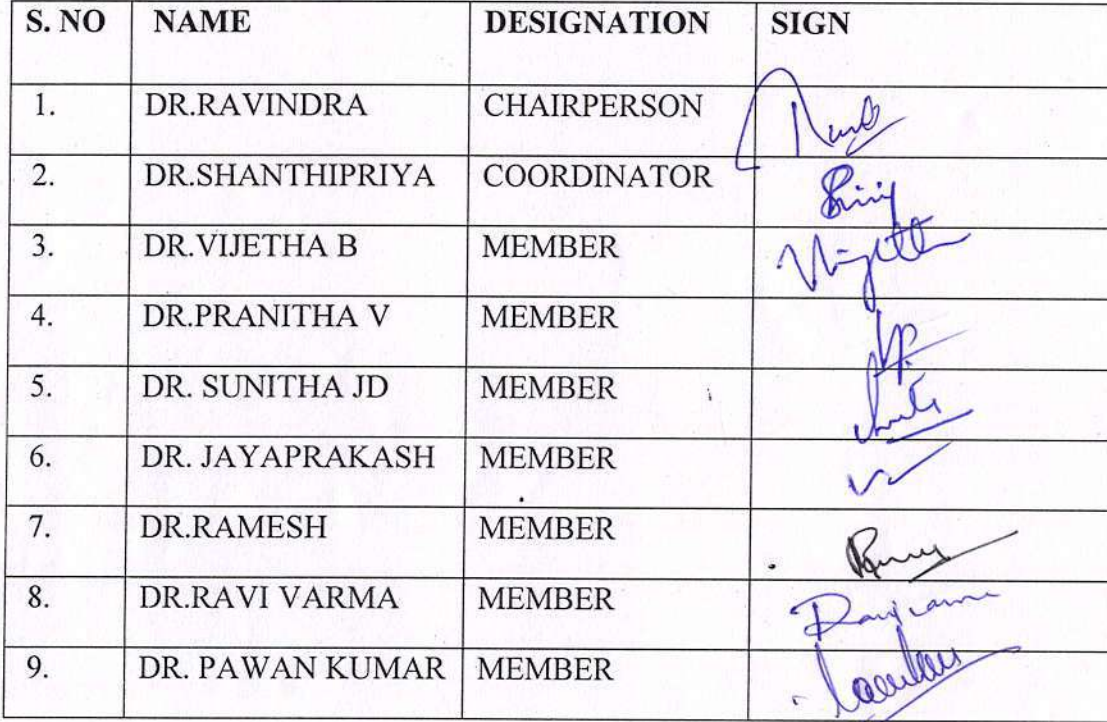 S. NO NAME DESIGNATION SIGN
1. DR.RAVINDRA CHAIRPERSON
2. DR.SHANTHIPRIYA COORDINATOR
3. DR.VIJETHA B MEMBER
4. DR.PRANITHA V MEMBER
5. DR. SUNITHA JD MEMBER
6. DR. JAYAPRAKASH MEMBER
7. DR.RAMESH MEMBER
8. DR.RAVI VARMA MEMBER
9. DR. PAWAN KUMAR MEMBER